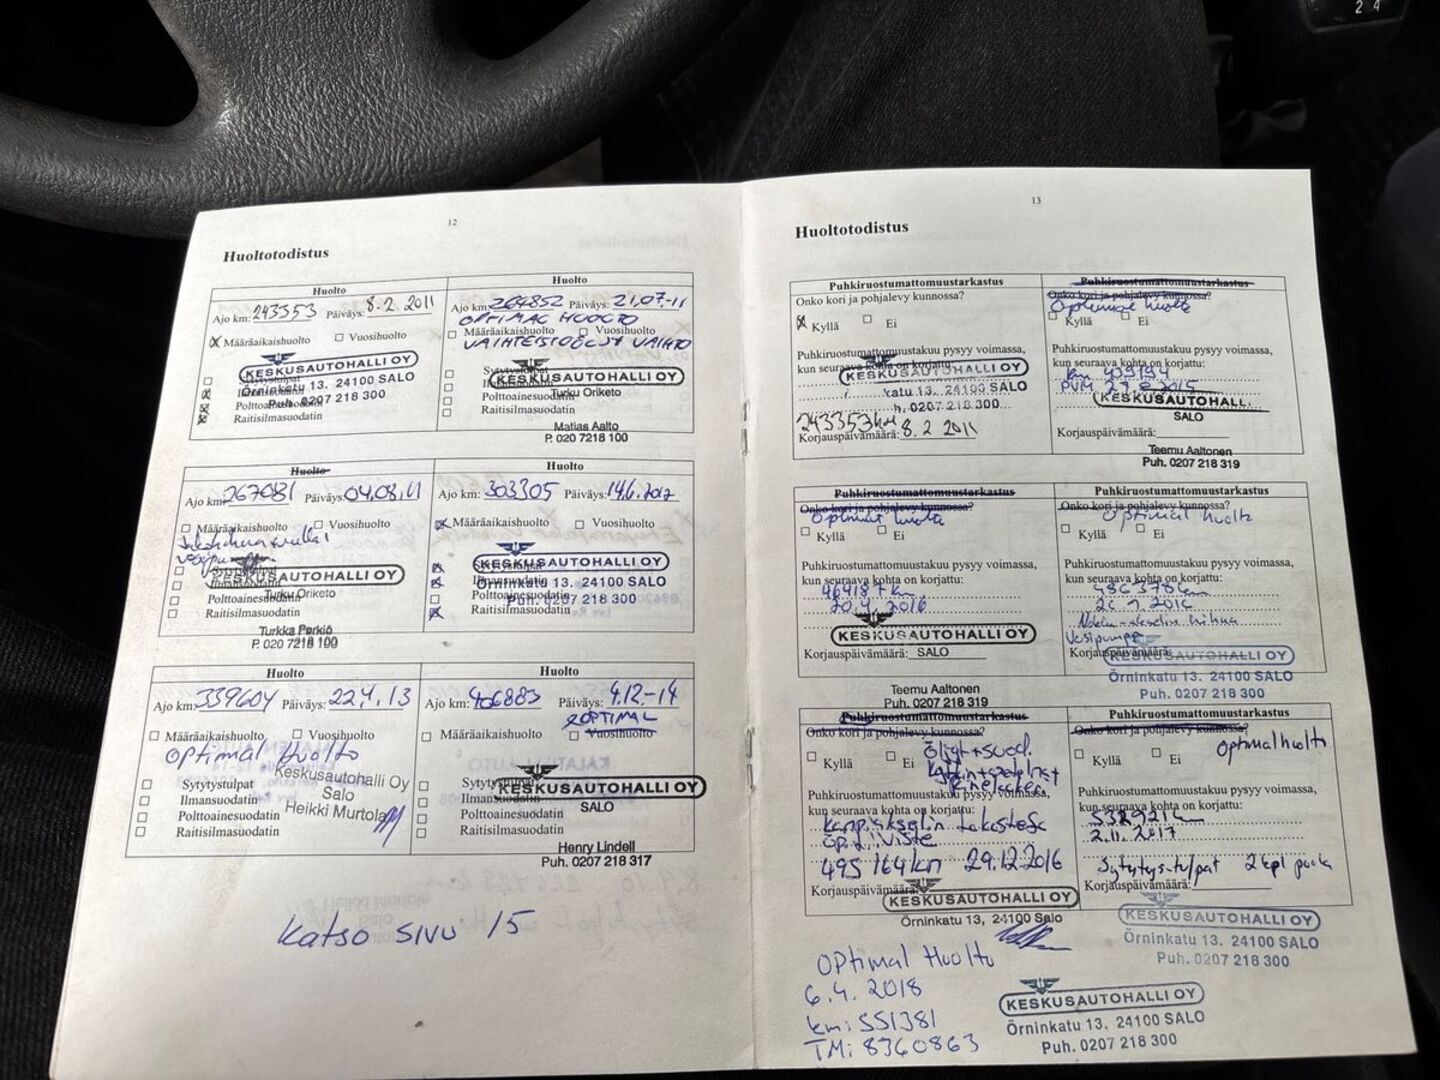 12
Huoltotodistus
Huolto
Ajo km: 243353 Päiväys: 8.2.2011
Määräaikaishuolto Vuosihuolto
KESKUSAUTOHALLI OY
Sytytystulpat
Örninkatu 13. 24100 SALO
Ilmansuodatin
Puh. 0207 218 300
Polttoainesuodatin
Raitisilmasuodatin
Huolto
Ajo km: 264852 Päiväys: 21.07-11
OPTIMAL HUOLTO
Määräaikaishuolto Vuosihuolto
VAIHTEISTOÖLJY VAIHTO
Sytytystulpat
KESKUSAUTOHALLI OY
Ilmansuodatin
Turku Oriketo
Polttoainesuodatin
Raitisilmasuodatin
Matias Aalto
P. 020 7218 100
Huolto
Ajo km: 267081 Päiväys: 04.08.11
Määräaikaishuolto Vuosihuolto
Sytytystulpat
KESKUSAUTOHALLI OY
Ilmansuodatin
Turku Oriketo
Polttoainesuodatin
Raitisilmasuodatin
Turkka Perkiö
P. 020 7218 100
Huolto
Ajo km: 303305 Päiväys: 14.6.2012
Määräaikaishuolto Vuosihuolto
KESKUSAUTOHALLI OY
Sytytystulpat
Ilmansuodatin
Örninkatu 13. 24100 SALO
Polttoainesuodatin
Puh. 0207 218 300
Raitisilmasuodatin
Huolto
Ajo km: 339604 Päiväys: 22.4.13
Määräaikaishuolto Vuosihuolto
Optimal Huolto
Keskusautohalli Oy
Sytytystulpat
Salo
Ilmansuodatin
Heikki Murtola
Polttoainesuodatin
Raitisilmasuodatin
Huolto
Ajo km: 406883 Päiväys: 4.12.-14
OPTIMAL
Määräaikaishuolto Vuosihuolto
Sytytystulpat
KESKUSAUTOHALLI OY
Ilmansuodatin
SALO
Polttoainesuodatin
Raitisilmasuodatin
Henry Lindell
Puh. 0207 218 317
Katso SIVU 15
13
Huoltotodistus
Puhkiruostumattomuustarkastus
Onko kori ja pohjalevy kunnossa?
Kyllä Ei
Puhkiruostumattomuustakuu pysyy voimassa,
kun seuraava kohta on korjattu:
KESKUSAUTOHALLI OY
katu 13. 24100 SALO
h. 0207 218 300
243353km
Korjauspäivämäärä: 8.2 2011
Puhkiruostumattomuustarkastus
Onko kori ja pohjalevy kunnossa?
Optimal huolto
Kyllä Ei
Puhkiruostumattomuustakuu pysyy voimassa,
kun seuraava kohta on korjattu:
KESKUSAUTOHALLI
SALO
Korjauspäivämäärä:
Teemu Aaltonen
Puh. 0207 218 319
Puhkiruostumattomuustarkastus
Onko kori ja pohjalevy kunnossa?
Optimal huolto
Kyllä Ei
Puhkiruostumattomuustakuu pysyy voimassa,
kun seuraava kohta on korjattu:
464187 km
20.4.2016
KESKUSAUTOHALLI OY
Korjauspäivämäärä: SALO
Teemu Aaltonen
Puh. 0207 218 319
Puhkiruostumattomuustarkastus
Onko kori ja pohjalevy kunnossa?
Optimal huolto
Kyllä Ei
Puhkiruostumattomuustakuu pysyy voimassa,
kun seuraava kohta on korjattu:
486378km
Vesipumppu
Korjauspäivämäärä:
KESKUSAUTOHALLI OY
Örninkatu 13. 24100 SALO
Puh. 0207 218 300
Puhkiruostumattomuustarkastus
Onko kori ja pohjalevy kunnossa?
Kyllä Ei
Öljyt + suod.
Puhkiruostumattomuustakuu pysyy voimassa,
kun seuraava kohta on korjattu:
495164km 29.12.2016
Korjauspäivämäärä:
KESKUSAUTOHALLI OY
Örninkatu 13, 24100 Salo
Puhkiruostumattomuustarkastus
Onko kori ja pohjalevy kunnossa?
Optimalhuolto
Kyllä Ei
Puhkiruostumattomuustakuu pysyy voimassa,
kun seuraava kohta on korjattu:
2.11.2017
Sytytystulpat 2 kpl
Korjauspäivämäärä:
KESKUSAUTOHALLI OY
Örninkatu 13. 24100 SALO
Puh. 0207 218 300
OPtimal Huolto
6.4.2018
km: 551381
TM: 8360863
KESKUSAUTOHALLI OY
Örninkatu 13. 24100 SALO
Puh. 0207 218 300
2 4